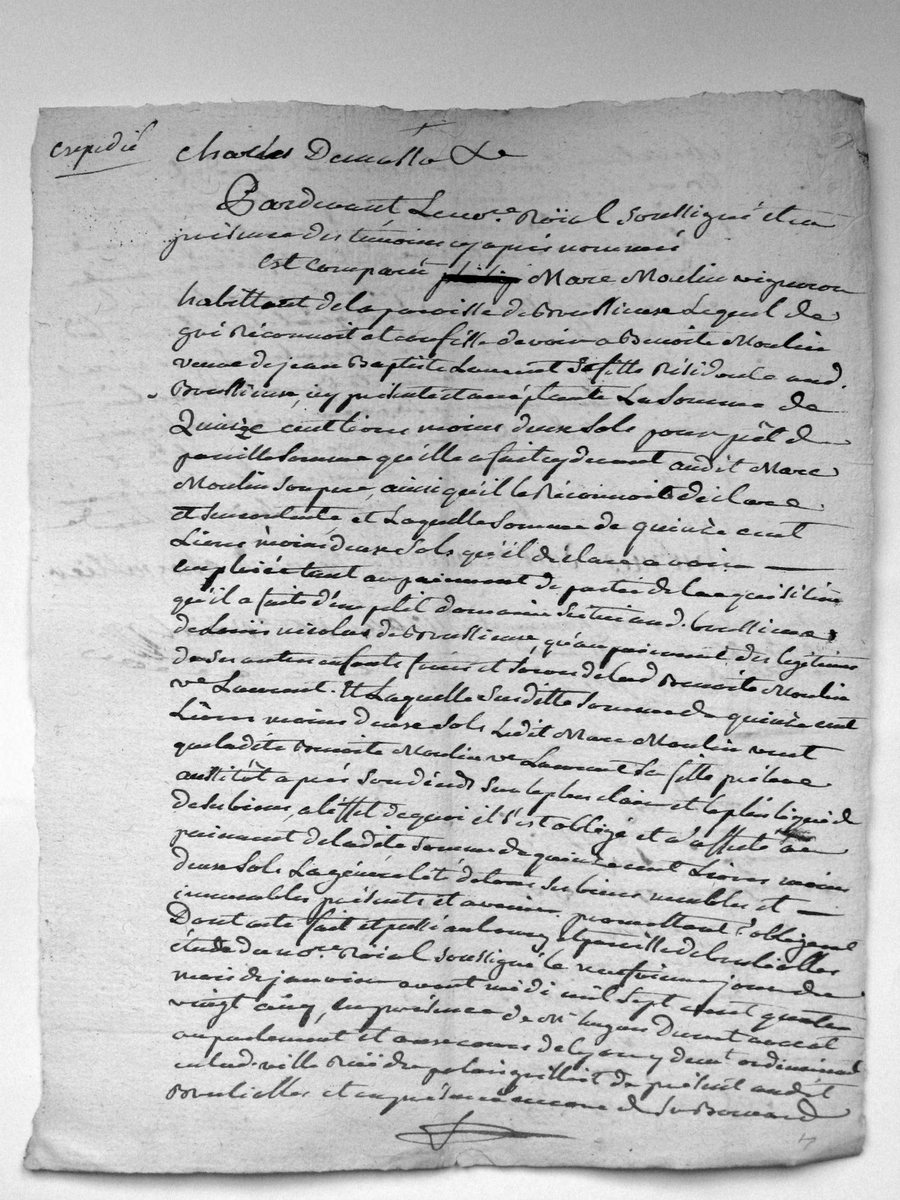 expedié
Charles Demasso &c
Pardevant Le no.re Roïal Soussigné et en
présence des témoins cy après nommés
est comparü Marc Moulin vigneron
habittant de la paroisse de Brussieuse Lequel de
gré Reconnoit et confesse devoir a Benoite Moulin
veuve de jean Baptiste Laurent Sa fille Résidente aud.
Brussieuse, icy présente et acceptante La Somme de
Quinze cent livres moins deux Sols pour prêt de
pareille Somme qu'elle a fait cy devant audit Marc
Moulin Son pere, ainsi qu'il le Reconnoit déclare
et Laquelle Somme de quinze cent
Livres moins deux Sols qu'il déclare avoir
employé tant au paiement de partie de l'acquisition
qu'il a faite d'un petit domaine Scitué aud. Brussieuse
de Louis nicolas de Brussieuse, qu'au paiement des légitimes
de Ses autres enfants freres et Soeurs de lad. Benoite Moulin
v.e Laurent. Et Laquelle Susditte Somme de quinze cent
Livres moins deux Sols Ledit Marc Moulin veut
que ladite Benoite Moulin v.e Laurent Sa fille préleve
aussitôt après Son décéds Sur le plus clair et le plus liquide
de Ses biens, a l'effet de quoi il s'est obligé et a affecté au
paiement de ladite Somme de quinze cent Livres moins
deux Sols La généralité de tous Ses biens meubles et
immeubles présents et avenir, promettant obligeant
Dont acte fait et passé au bourg et paroisse de Brulliolles
étude du no.re Roïal Soussigné le neufvieme jour du
mois de janvier avant midi mil Sept cent quatre
vingt cinq, en présence de M.e Durant avocat
au parlement et aux cours de Lyon y dem.t ordinairement
en lad. ville Rüe du palais grillet de présent audit
Brulliolles et en présence encore de S.r